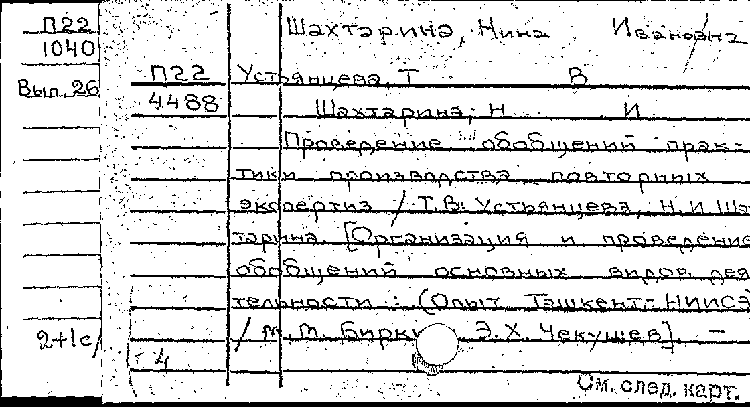 П22
1040
Вып. 26
2+1с/
Шахтарина, Нина Ивановна
П22
4488
Устьянцева, Т В
Шахтарина, Н И
Проведение обобщений прак-
тики производства повторных
экспертиз / Т.В. Устьянцева, Н.И. Шах
тарина. [Организация и проведение
обобщений основных видов дея
тельности : (Опыт Ташкент. НИИСЭ)
/ М.М. Бирку Э.Х. Чекушев]. –
4
См. след. карт.